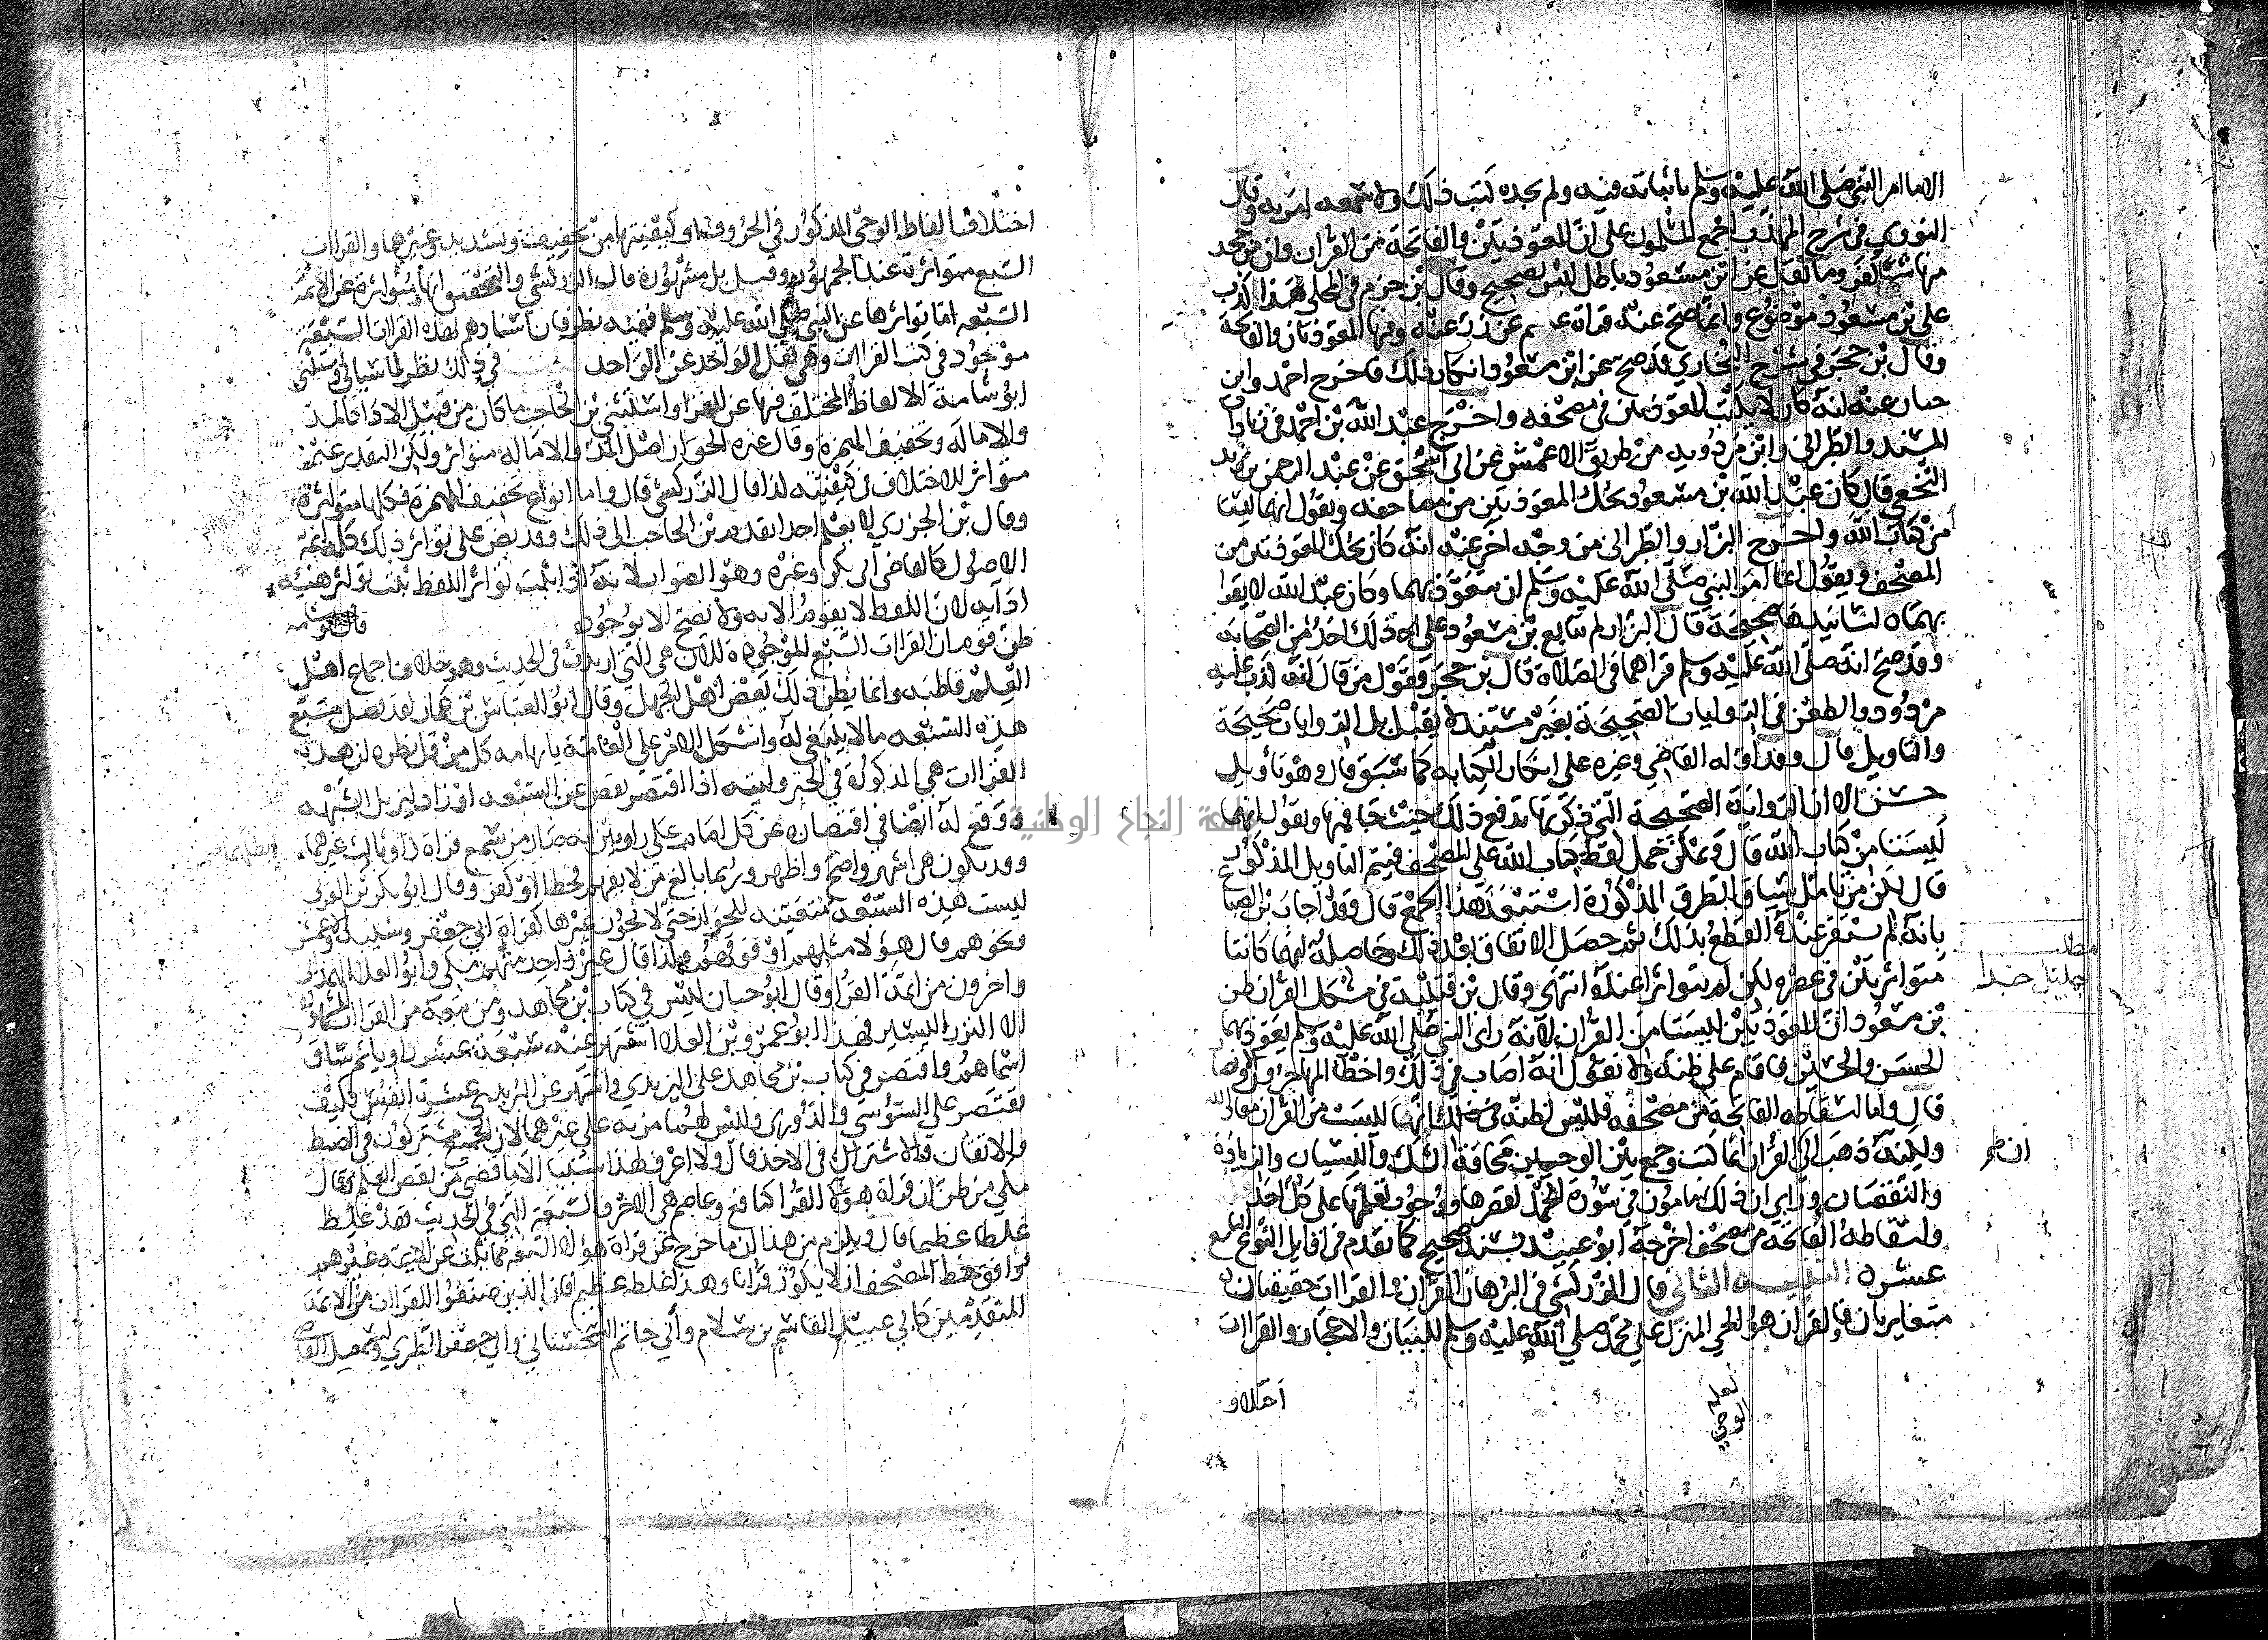 الاما امر النبي صلى الله عليه وسلم باثباته فيه ولم يجده كتب ذلك ولا سمعه امر به وقال
النووي في شرح المهذب اجمع المسلمون على ان المعوذتين والفاتحة من القران وان من جحد
منها شيئا كفر وما نقل عن ابن مسعود باطل ليس بصحيح وقال بن حزم في المحلى هذا كذب
على بن مسعود موضوع وانما صح عنه قراة عاصم عن زر عنه وفيها المعوذتان والفاتحة
وقال بن حجر في شرح البخاري قد صح عن ابن مسعود انكار ذلك فاخرج احمد وابن
حبان عنه انه كان لا يكتب المعوذتين في مصحفه واخرج عبد الله بن احمد في زيادات
المسند والطبراني وابن مردويه من طريق الاعمش عن ابي اسحق عن عبد الرحمن بن يزيد
النخعي قال كان عبد الله بن مسعود يحك المعوذتين من مصاحفه ويقول انهما ليستا
من كتاب الله واخرج البزار والطبراني من وجه اخر عنه انه كان يحك المعوذتين من
المصحف ويقول انما امر النبي صلى الله عليه وسلم ان يتعوذ بهما وكان عبد الله لا يقرا
بهما اسانيدها صحيحة قال البزار لم يتابع بن مسعود على ذلك احد من الصحابة
وقد صح انه صلى الله عليه وسلم قراهما في الصلاة قال بن حجر فقول من قال انه كذب عليه
مردود والطعن في الروايات الصحيحة بغير مستند لا يقبل بل الروايات صحيحة
والتاويل قال وقد اوله القاضي وغيره على انكار الكتابه كما سبق قال وهو تاويل
حسن الا ان الرواية الصحيحة التي ذكرتها تدفع ذلك حيث جا فيها ويقول انهما
ليستا من كتاب الله قال ويمكن حمل لفظ كتاب الله على المصحف فيتم التاويل المذكور
قال لكن من تامل سياق الطرق المذكورة استبعد هذا الجمع قال وقد اجاب بن الصباغ
بانه لم يستقر عنده القطع بذلك ثم حصل الاتفاق بعد ذلك وحاصله انهما كانتا
متواترتين في عصره لكن لم يتواترا عنده انتهى وقال بن قتيبة في مشكل القران ظن
بن مسعود ان المعوذتين ليستا من القران لانه راى النبي صلى الله عليه وسلم يعوذ بهما
الحسن والحسين فاقام على ظنه ولا نقول انه اصاب في ذلك واخطا المهاجرون والانصار
قال واما اسقاطه الفاتحة من مصحفه فليس لظنه انها ليست من القران معاذ الله
ولكنه ذهب الى القران انما كتب وجمع بين اللوحين مخافة الشك والنسيان والزيادة
والنقصان وراى ان ذلك مامون في سورة الحمد لقصرها ووجوب تعلمها على كل احد
واسقاطه الفاتحة من مصحفه اخرجه ابو عبيد بسند صحيح كما تقدم في اوايل النوع التاسع
عشره التنبيه الثاني قال الزركشي في البرهان القران والقراات حقيقتان
متغايرتان فالقران هو الوحي المنزل على محمد صلى الله عليه وسلم للبيان والاعجاز والقراات
اختلاف
مطلب
جليل جدا
انظر
اختلاف الفاظ الوحي المذكور في الحروف او كيفيتها من تخفيف وتشديد وغيرها والقراات
السبع متواترة عند الجمهور وقيل بل مشهورة قال الزركشي والتحقيق انها متواترة عن الايمة
السبعه اما تواترها عن النبي صلى الله عليه وسلم ففيه نظر فان اسنادهم بهذه القراات السبعة
موجود في كتب القراات وهي نقل الواحد عن الواحد في ذلك نظر لما سياتي واستثنى
ابو شامة الالفاظ المختلف فيها عن القرا واستثنى بن الحاجب ما كان من قبيل الادا كالمد
والامالة وتخفيف الهمزة وقال غيره الحق ان اصل المد والامالة متواتر ولكن التقدير غير
متواتر للاختلاف في كيفيته كذا قال الزركشي قال واما انواع تخفيف الهمزة فكلها متواترة
وقال بن الجزري لا نعلم احدا تقدم بن الحاجب الى ذلك وقد نص على تواتر ذلك كله ايمة
الاصول كالقاضي ابي بكر وغيره وهو الصواب لانه اذا ثبت تواتر اللفظ ثبت تواتر هيئة
ادايه لان اللفظ لا يقوم الا به ولا يصح الا بوجوده قال ابو شامه
ظن قوم ان القراات السبع الموجودة الان هي التي اريدت في الحديث وهو خلاف اجماع اهل
العلم قاطبه وانما يظن ذلك بعض اهل الجهل وقال ابو العباس بن عمار لقد نقل مسبع
هذه السبعه ما لا ينبغي له واشكل الامر على العامة بايهامه كل من قل نظره ان هذه
القراات هي المذكورة في الخبر وليته اذا اقتصر نقص عن السبعه او زاد ليزيل الشبهه
ووقع له ايضا في اقتصاره عن كل امام على راويين انه صار من سمع قراة راو ثالث غيرهما ابطلها
وقد يكون هي اشهر واصح واظهر وربما بالغ من لا يفهم فخطا او كفر وقال ابو بكر بن العربي
ليست هذه السبعة متعينه للجواز حتى لا يجوز غيرها كقراة ابي جعفر وشيبه والاعمش
ونحوهم فان هؤلا مثلهم او فوقهم وكذا قال غير واحد منهم مكي وابو العلا الهمداني
واخرون من ايمة القرا وقال ابو حيان ليس في كتاب بن مجاهد ومن تبعه من القراات المشهورة
الا النزر اليسير فهذا ابو عمرو بن العلا اشتهر عنه سبعة عشر راويا ثم ساق
اسماهم واقتصر في كتاب بن مجاهد على اليزيدي واشتهر عن اليزيدي عشرة انفس فكيف
يقتصر على السوسي والدوري وليس لهما مزيه على غيرهما لان الجميع مشتركون في الضبط
والاتقان والاشتراك في الاخذ قال ولا اعرف لهذا سببا الا ما قضي من نقص العلم وقال
مكي من ظن ان قراة هؤلا القرا كنافع وعاصم هي الاحرف السبعة التي في الحديث فقد غلط
غلطا عظيما قال ويلزم من هذا ان ما خرج عن قراة هؤلا السبعه مما ثبت عن الايمة غيرهم
ووافق خط المصحف ان لا يكون قرانا وهذا غلط عظيم فان الذين صنفوا القراات من الايمة
المتقدمين كابي عبيد القاسم بن سلام وابي حاتم السجستاني وابي جعفر الطبري واسمعيل القاضي
جامعة النجاح الوطنية